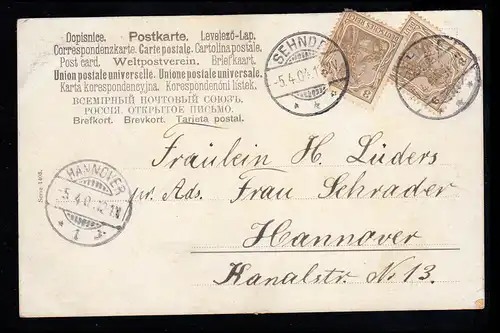 Dopisnice. Postkarte. Levelező-Lap.
Correspondenzkarte. Carte postale. Cartolina postale.
Post card. Weltpostverein. Briefkaart.
Union postale universelle. Unione postale universale.
Karta korespondencyjna. Korespondenční lístek.
ВСЕМІРНЫЙ ПОЧТОВЫЙ СОЮЗЪ.
РОССІЯ. ОТКРЫТОЕ ПИСЬМО.
Brefkort. Brevkort. Tarjeta postal.
SEHNDE
-5.4.0
DEUTSCHES REICH
3
HANNOVER
-5.4.0
1
Fräulein H. Lüders
pr. Ads. Frau Schrader
Hannover
Kanalstr. No 13.